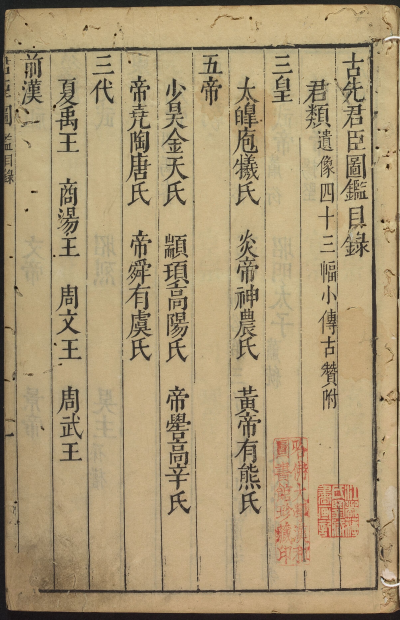 古先君臣圖鑑目錄
君類遺像四十三幅小傳古贊附
三皇
太皥庖犧氏 炎帝神農氏 黃帝有熊氏
五帝
少昊金天氏 顓頊高陽氏 帝嚳高辛氏
帝堯陶唐氏 帝舜有虞氏
三代
夏禹王 商湯王 周文王 周武王
前漢